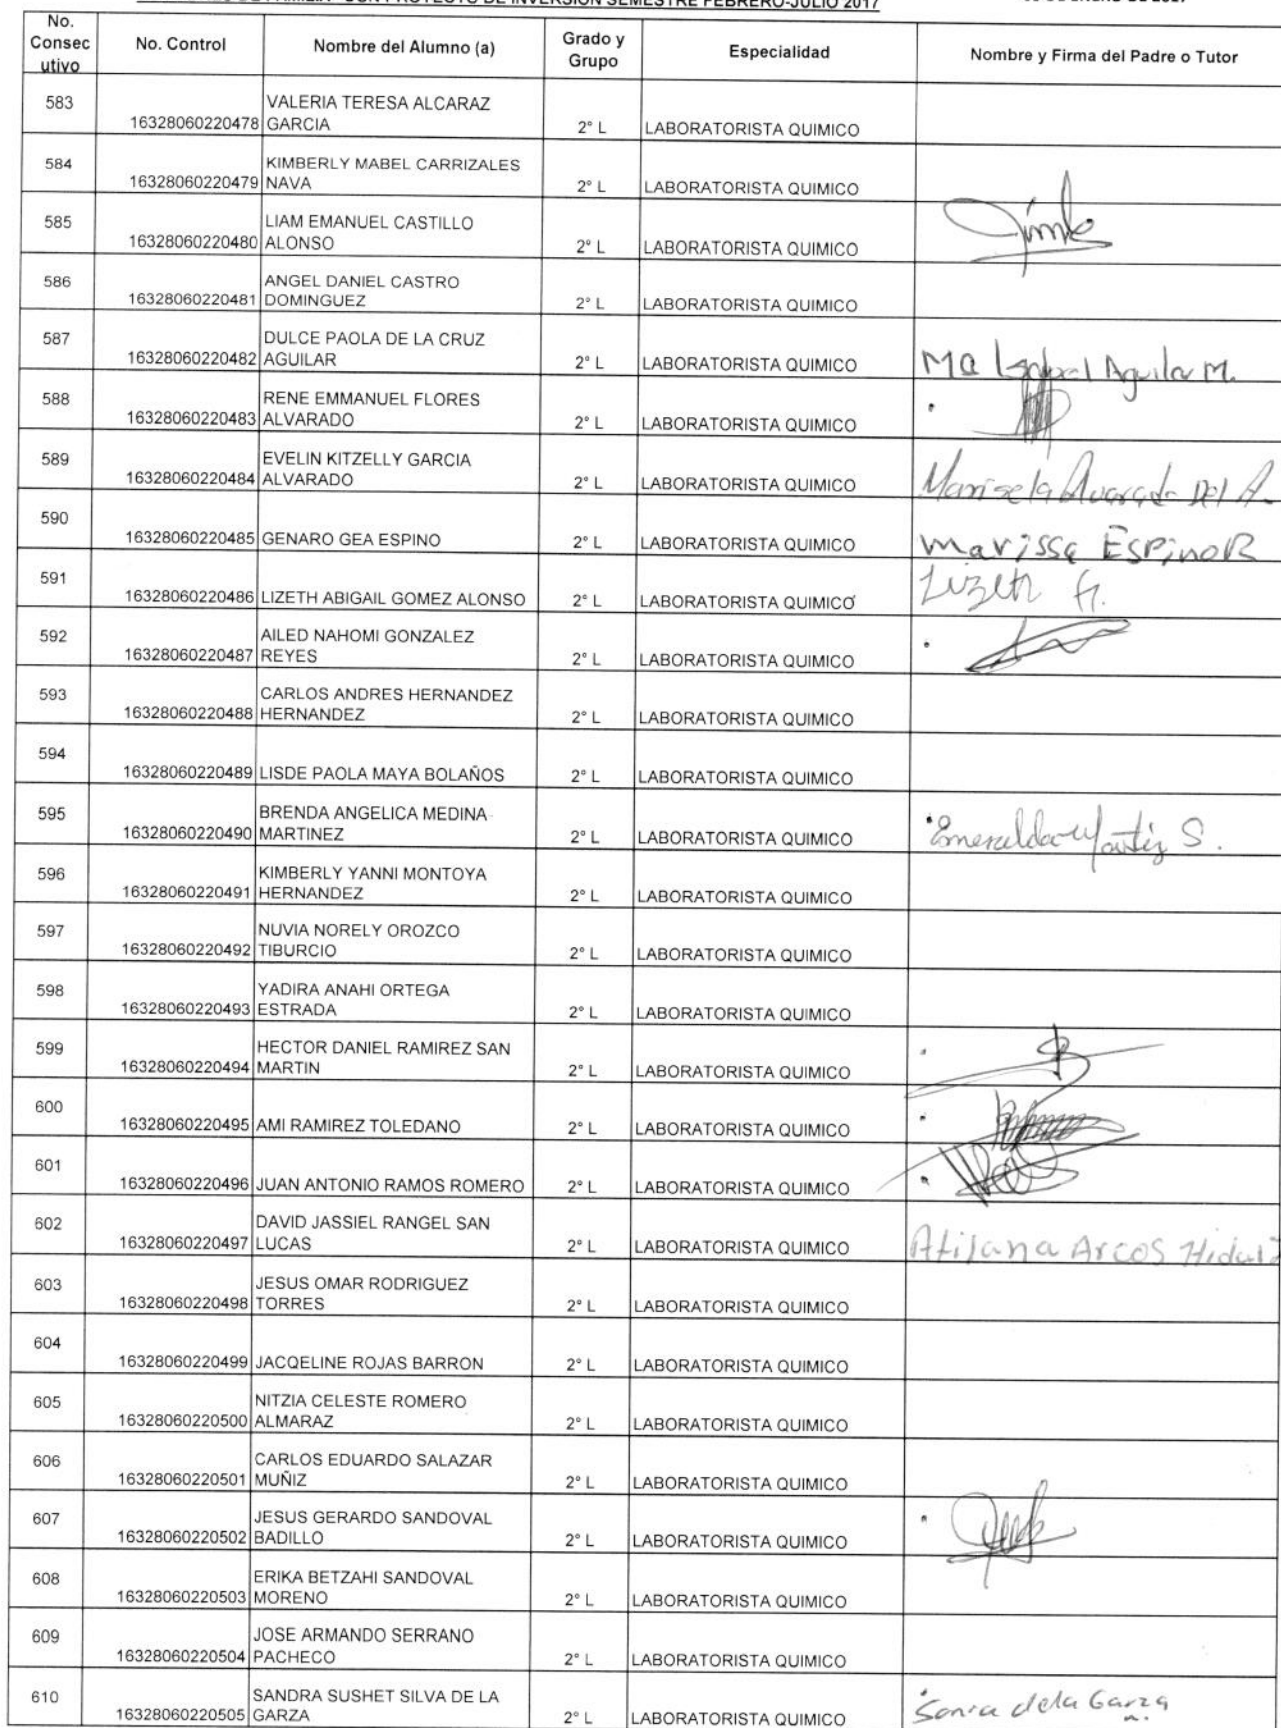 DE FAMILIA" CON PROYECTO DE INVERSIÓN SEMESTRE FEBRERO-JULIO 2017
DE ENERO DE 2017
No. Consec utivo No. Control Nombre del Alumno (a) Grado y Grupo Especialidad Nombre y Firma del Padre o Tutor
583 16328060220478 VALERIA TERESA ALCARAZ GARCIA 2° L LABORATORISTA QUIMICO
584 16328060220479 KIMBERLY MABEL CARRIZALES NAVA 2° L LABORATORISTA QUIMICO
585 16328060220480 LIAM EMANUEL CASTILLO ALONSO 2° L LABORATORISTA QUIMICO
586 16328060220481 ANGEL DANIEL CASTRO DOMINGUEZ 2° L LABORATORISTA QUIMICO
587 16328060220482 DULCE PAOLA DE LA CRUZ AGUILAR 2° L LABORATORISTA QUIMICO Ma Isabel Aguilar M.
588 16328060220483 RENE EMMANUEL FLORES ALVARADO 2° L LABORATORISTA QUIMICO
589 16328060220484 EVELIN KITZELLY GARCIA ALVARADO 2° L LABORATORISTA QUIMICO Marisela Alvarado Del A.
590 16328060220485 GENARO GEA ESPINO 2° L LABORATORISTA QUIMICO Marissa Espino R
591 16328060220486 LIZETH ABIGAIL GOMEZ ALONSO 2° L LABORATORISTA QUIMICO Lizeth G.
592 16328060220487 AILED NAHOMI GONZALEZ REYES 2° L LABORATORISTA QUIMICO
593 16328060220488 CARLOS ANDRES HERNANDEZ HERNANDEZ 2° L LABORATORISTA QUIMICO
594 16328060220489 LISDE PAOLA MAYA BOLAÑOS 2° L LABORATORISTA QUIMICO
595 16328060220490 BRENDA ANGELICA MEDINA MARTINEZ 2° L LABORATORISTA QUIMICO Esmeralda Martiz S.
596 16328060220491 KIMBERLY YANNI MONTOYA HERNANDEZ 2° L LABORATORISTA QUIMICO
597 16328060220492 NUVIA NORELY OROZCO TIBURCIO 2° L LABORATORISTA QUIMICO
598 16328060220493 YADIRA ANAHI ORTEGA ESTRADA 2° L LABORATORISTA QUIMICO
599 16328060220494 HECTOR DANIEL RAMIREZ SAN MARTIN 2° L LABORATORISTA QUIMICO
600 16328060220495 AMI RAMIREZ TOLEDANO 2° L LABORATORISTA QUIMICO
601 16328060220496 JUAN ANTONIO RAMOS ROMERO 2° L LABORATORISTA QUIMICO
602 16328060220497 DAVID JASSIEL RANGEL SAN LUCAS 2° L LABORATORISTA QUIMICO Arcos
603 16328060220498 JESUS OMAR RODRIGUEZ TORRES 2° L LABORATORISTA QUIMICO
604 16328060220499 JACQELINE ROJAS BARRON 2° L LABORATORISTA QUIMICO
605 16328060220500 NITZIA CELESTE ROMERO ALMARAZ 2° L LABORATORISTA QUIMICO
606 16328060220501 CARLOS EDUARDO SALAZAR MUÑIZ 2° L LABORATORISTA QUIMICO
607 16328060220502 JESUS GERARDO SANDOVAL BADILLO 2° L LABORATORISTA QUIMICO
608 16328060220503 ERIKA BETZAHI SANDOVAL MORENO 2° L LABORATORISTA QUIMICO
609 16328060220504 JOSE ARMANDO SERRANO PACHECO 2° L LABORATORISTA QUIMICO
610 16328060220505 SANDRA SUSHET SILVA DE LA GARZA 2° L LABORATORISTA QUIMICO Sonia dela Garza